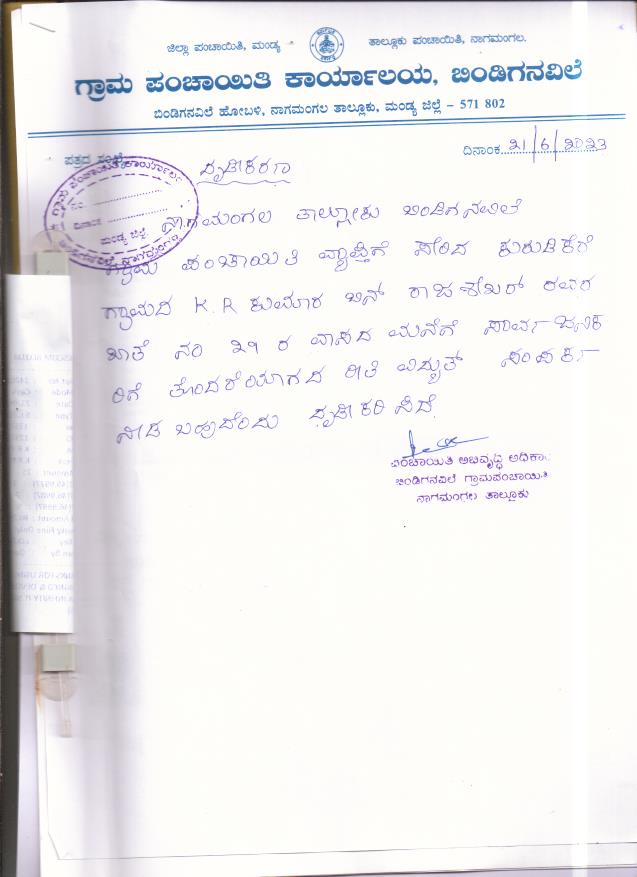 ಜಿಲ್ಲಾ ಪಂಚಾಯಿತಿ, ಮಂಡ್ಯ ತಾಲ್ಲೂಕು ಪಂಚಾಯಿತಿ, ನಾಗಮಂಗಲ.
ಗ್ರಾಮ ಪಂಚಾಯಿತಿ ಕಾರ್ಯಾಲಯ, ಬಿಂಡಿಗನವಿಲೆ
ಬಿಂಡಿಗನವಿಲೆ ಹೋಬಳಿ, ನಾಗಮಂಗಲ ತಾಲ್ಲೂಕು, ಮಂಡ್ಯ ಜಿಲ್ಲೆ - 571 802
ಪತ್ರದ ಸಂಖ್ಯೆ ದಿನಾಂಕ 21/6/2023
ದೃಢೀಕರಣ
ನಂ
ದಿನಾಂಕ
ಮಂಡ್ಯ ಜಿಲ್ಲೆ.
ನಾಗಮಂಗಲ ತಾಲ್ಲೋಕು ಬಿಂಡಿಗನವಿಲೆ
ಗ್ರಾಮ ಪಂಚಾಯಿತಿ ವ್ಯಾಪ್ತಿಗೆ ಸೇರಿದ ಕುರುಡಿಕೆರೆ
ಗ್ರಾಮದ K.R ಕುಮಾರ ಬಿನ್ ರಾಜಶೇಖರ್ ರವರ
ಖಾತೆ ನಂ 29 ರ ವಾಸದ ಮನೆಗೆ ಸಾರ್ವಜನಿಕ
ರಿಗೆ ತೊಂದರೆಯಾಗದ ರೀತಿ ವಿದ್ಯುತ್ ಸಂಪರ್ಕ
ನೀಡ ಬಹುದೆಂದು ದೃಢೀಕರಿಸಿದೆ.
ಪಂಚಾಯಿತಿ ಅಭಿವೃದ್ಧಿ ಅಧಿಕಾ
ಬಿಂಡಿಗನವಿಲೆ ಗ್ರಾಮಪಂಚಾಯಿತಿ
ನಾಗಮಂಗಲ ತಾಲ್ಲೂಕು